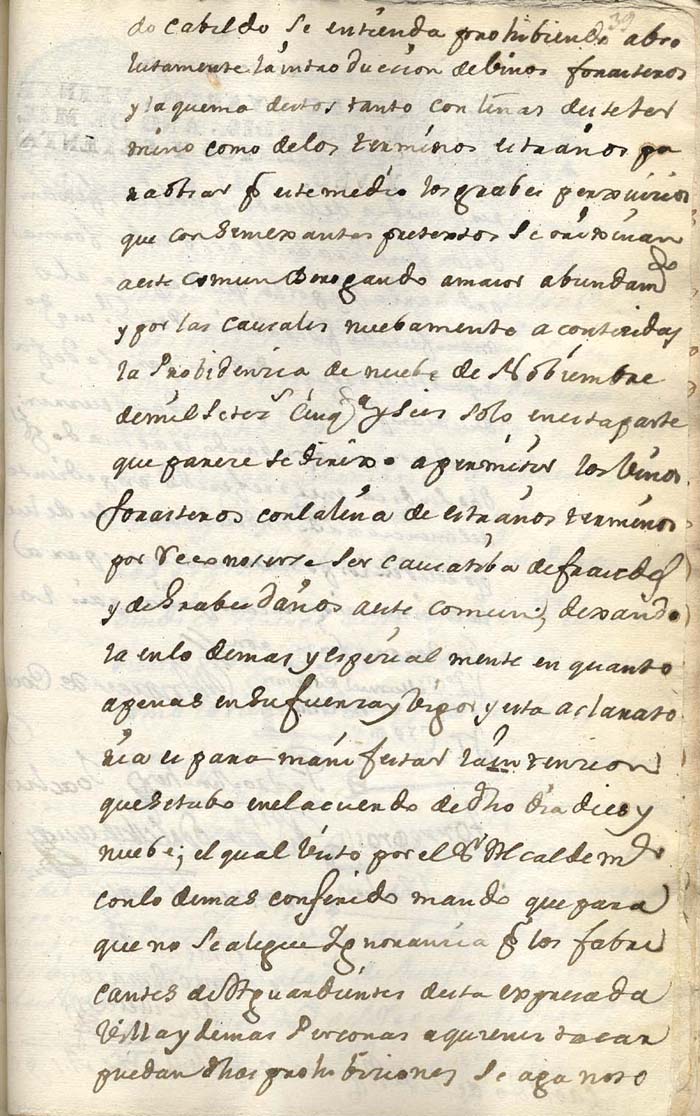 39
do cabildo se entienda prohibiendo abso
lutamente la introduccion de binos forasteros
y la quema destos tanto con leñas de este ter
mino como de los terminos estraños pa
ra obiar p este medio los grabes perxuicios
que con semexantes pretextos se orixinan
a este comun Derogando a maior abundamto
y por las causales nuebamente acontecidas
la Probidencia de nuebe de Nobiembre
de mil setezs cinqta y seis solo en esta parte
que parece se dirixe a permitir los binos
forasteros con la leña de estraños terminos
por reconoserse ser causatiba de fraudes
y de grabes daños a este comun; dexando
la en lo demas, y espezialmente en quanto
a penas en su fuerza y bigor y esta aclarato
ria es para manifestar la intenzion
que se tubo en el acuerdo de dho dia dies y
nuebe; el qual bisto por el Sr Alcalde mor
con lo demas conferido mando que para
que no se alegue Ygnorancia p los fabri
cantes de Aguardientes de esta expresada
Villa y demas Personas a quienes tocar
puedan dhas prohibiciones se aga noto